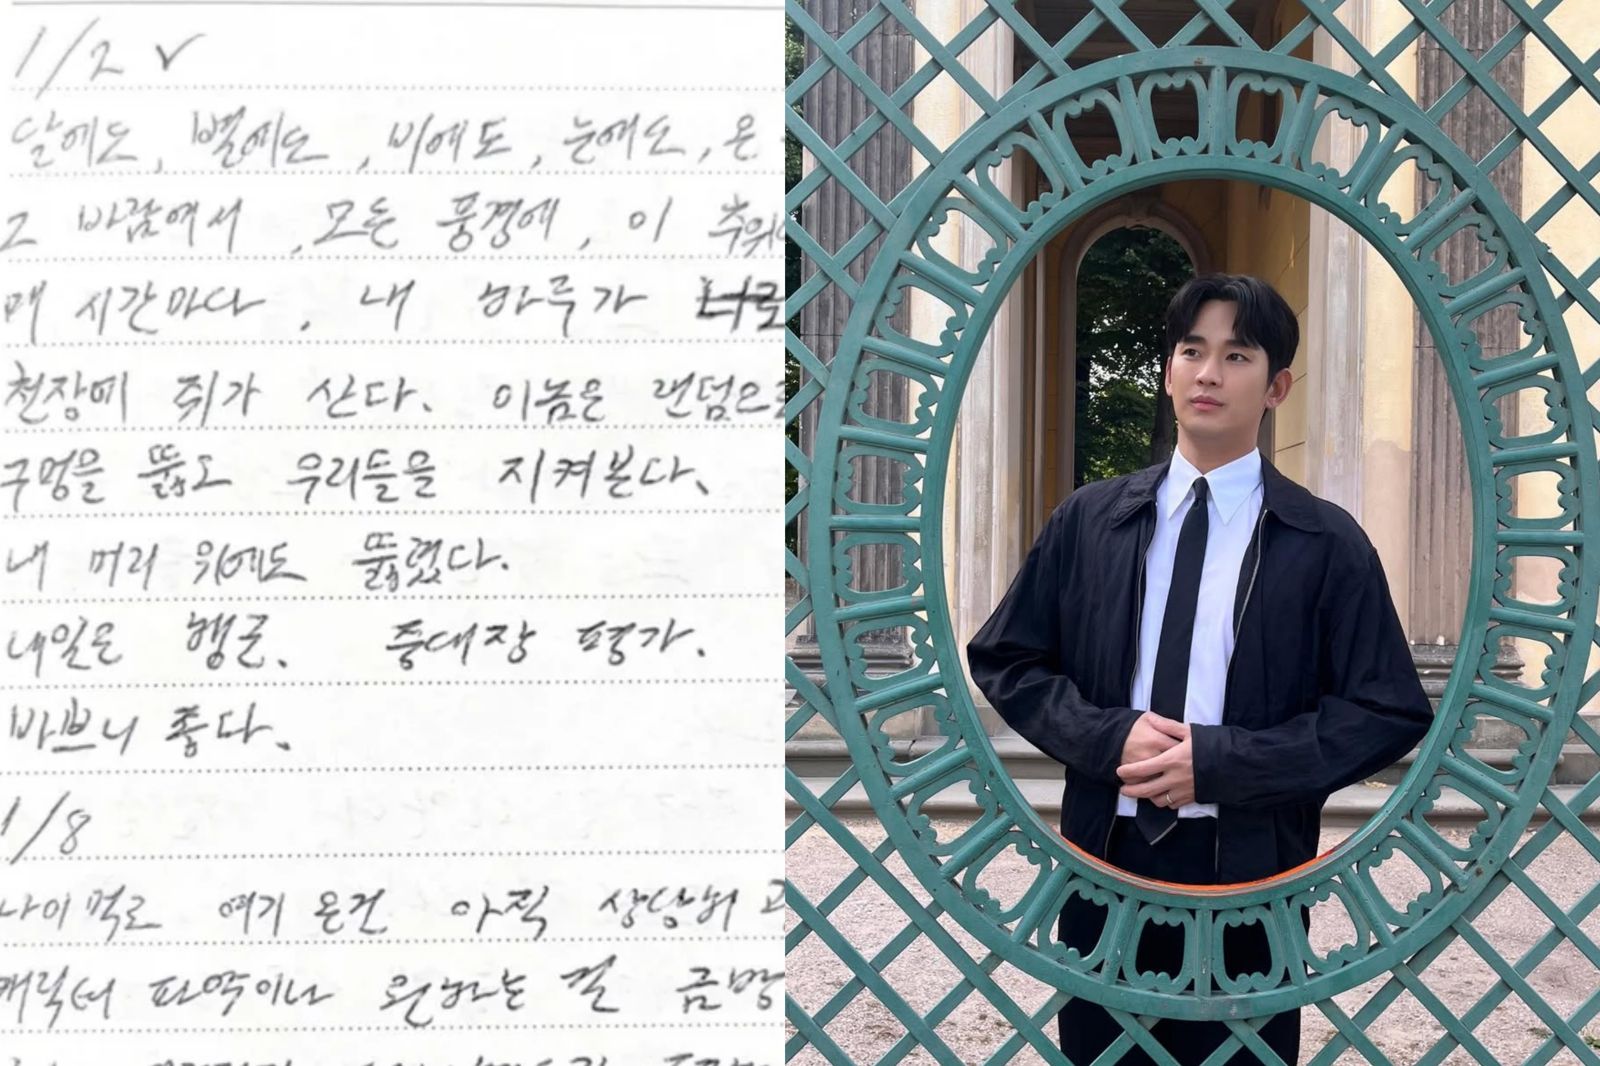 1/2 ✓
달에도, 별에도, 비에도, 눈에도, 온
그 바람에서, 모든 풍경에, 이 추위
매 시간마다, 내 하루가 너로
천장에 쥐가 산다. 이놈은 랜덤으로
구멍을 뚫고 우리들을 지켜본다.
내 머리 위에도 뚫렸다.
내일은 행군. 중대장 평가.
바쁘니 좋다.
1/8
나이 먹고 여기 온건 아직 상당히
캐릭터 파악이나 원하는 걸 금방